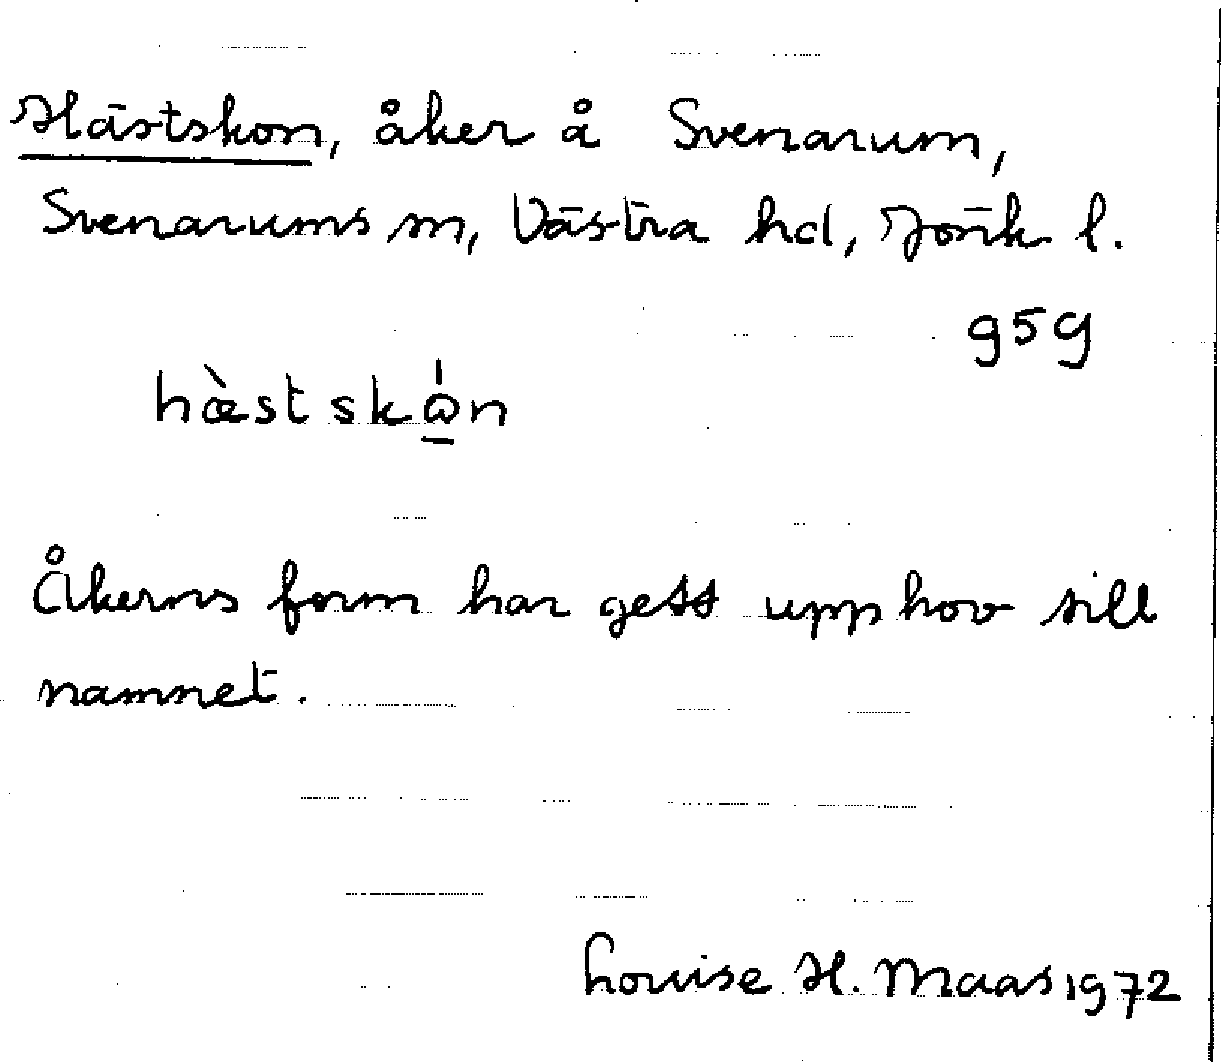 Hästskon, åker å Svenarum,
Svenarums sn, Västra hd, Jönk l.
959
hæ̀stskώ̲n
Åkerns form har gett upphov till
namnet.
Louise H. Maas 1972